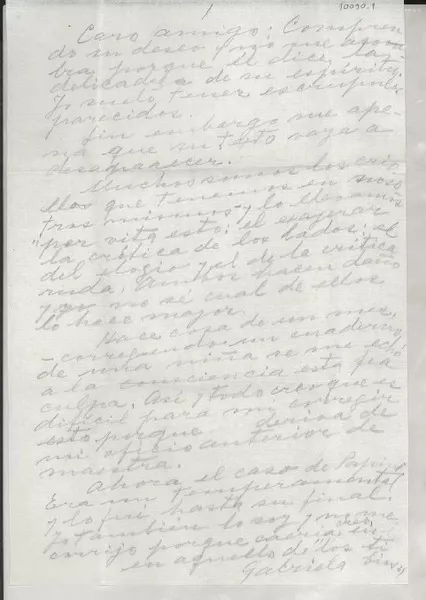 1
10090.1
Caro amigo: Compren-
do su deseo y no que asom-
bra porque él dice la
delicadeza de su espíritu.
Yo suelo tener escrúpulos
parecidos.
Sin embargo me ape-
na que su texto vaya a
desaparecer.
Muchos somos los crio-
llos que tenemos en noso-
tros mismos y lo llevamos
"per vita" esto: el exagerar
la crítica de los lados: el
del elogio y el de la crítica
ruda. Ambos hacen daño
y yo no sé cual de ellos
lo hace mayor.
Hace cosa de un mes,
-corrigiendo un cuaderno
de una niña se me echó
a la consciencia esta
culpa. Así y todo creo que es
difícil para mí corregir
esto porque deriva de
mi oficio anterior de
maestra.
Ahora el caso de Papini.
Era un temperamental
y lo fué hasta su final.
Yo también lo soy y no me
corrijo porque caería, creo,
en aquello de los ti
Gabriela